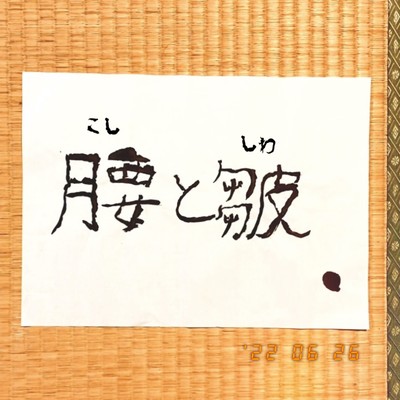 こし しわ
腰と皺
'22 06 26